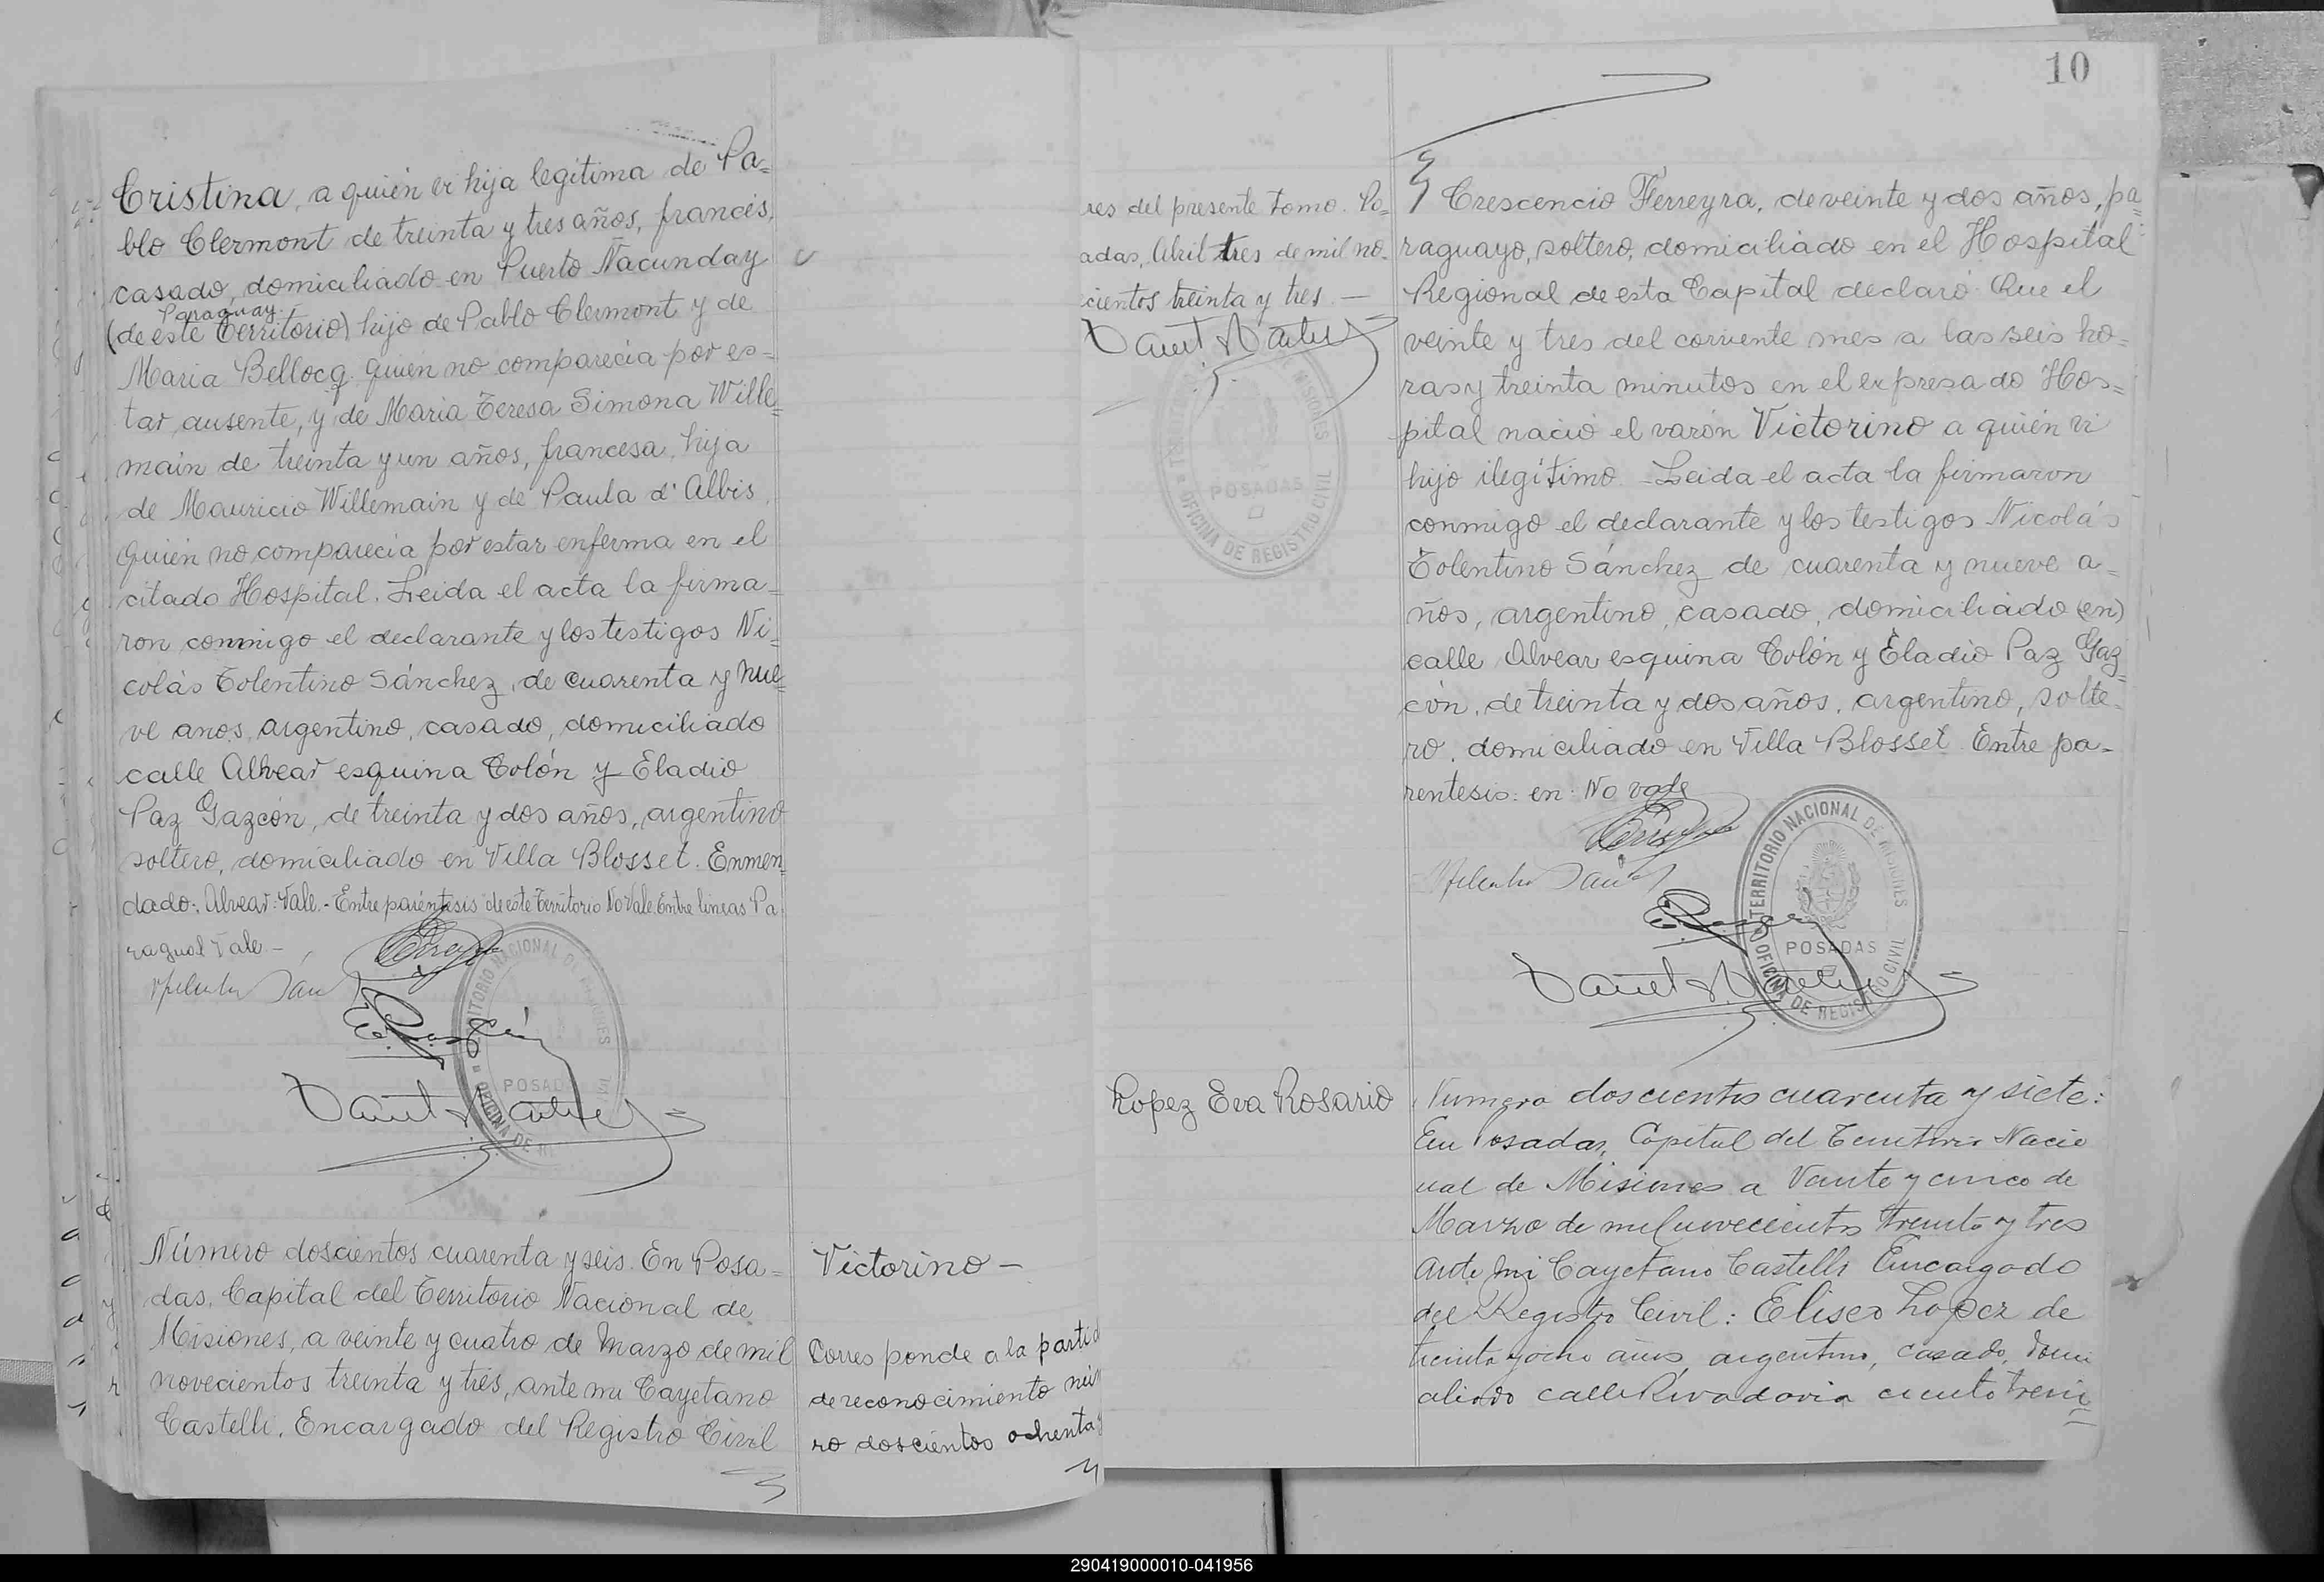 Cristina, a quién vi hija legítima de Pa=
blo Clermont de treinta y tres años, francés,
casado, domiciliado en Puerto Ñacunday
Paraguay
(de este Territorio) hijo de Pablo Clermont y de
Maria Bellocq quien no comparecia por es=
tar ausente, y de Maria Teresa Simona Wille=
main de treinta y un años, francesa, hija
de Mauricio Willemain y de Paula d'Albis
quien no comparecia por estar enferma en el
citado Hospital. Leida el acta la firma=
ron conmigo el declarante y los testigos Ni=
colás Tolentino Sánchez, de cuarenta y nue=
ve anos, argentino, casado, domiciliado
calle Alvear esquina Colón y Eladio
Paz Gazcón, de treinta y dos años, argentino
soltero, domiciliado en Villa Blosset. Enmen
dado: Alvear: Vale.- Entre paréntesis de este Territorio No Vale. Entre lineas Pa
raguay Vale -
TERRITORIO NACIONAL DE MISIONES
POSADAS
OFICINA DE
Número doscientos cuarenta y seis. En Posa=
das, Capital del Territorio Nacional de
Misiones, a veinte y cuatro de Marzo de mil
novecientos treinta y tres, ante mi Cayetano
Castelli, Encargado del Registro Civil
Victorino -
Corresponde a la partid
de reconocimiento núm
ro doscientos ochenta y
res del presente tomo. Po=
adas, Abril tres de mil no-
cientos treinta y tres -
MISIONES
POSADAS
OFICINA DE REGISTRO CIVIL
10
Crescencio Ferreyra, de veinte y dos años, pa=
raguayo, soltero, domiciliado en el Hospital
Regional de esta Capital declaró: Que el
veinte y tres del corriente mes a las seis ho=
ras y treinta minutos en el expresado Hos=
pital nació el varón Victorino a quién vi
hijo ilegítimo - Leida el acta la firmaron
conmigo el declarante y los testigos Nicolás
Tolentino Sánchez de cuarenta y nueve a=
ños, argentino, casado, domiciliado (en)
calle Alvear esquina Colón y Eladio Paz Gaz
cón, de treinta y dos años, argentino, solte-
ro, domiciliado en Villa Blosset. Entre pa-
rentesis: en: No vale
TERRITORIO NACIONAL DE MISIONES
POSADAS
OFICINA DE REGISTRO CIVIL
Lopez Eva Rosario
Numero doscientos cuarenta y siete:
En Posadas, Capital del Territorio Nacio
nal de Misiones a Veinte y cinco de
Marzo de mil novecientos treinta y tres
ante mi Cayetano Castelli Encargado
del Registro Civil: Eliseo Lopez de
treinta y ocho años, argentino, casado, domi
ciliado calle Rivadavia ciento trein
290419000010-041956